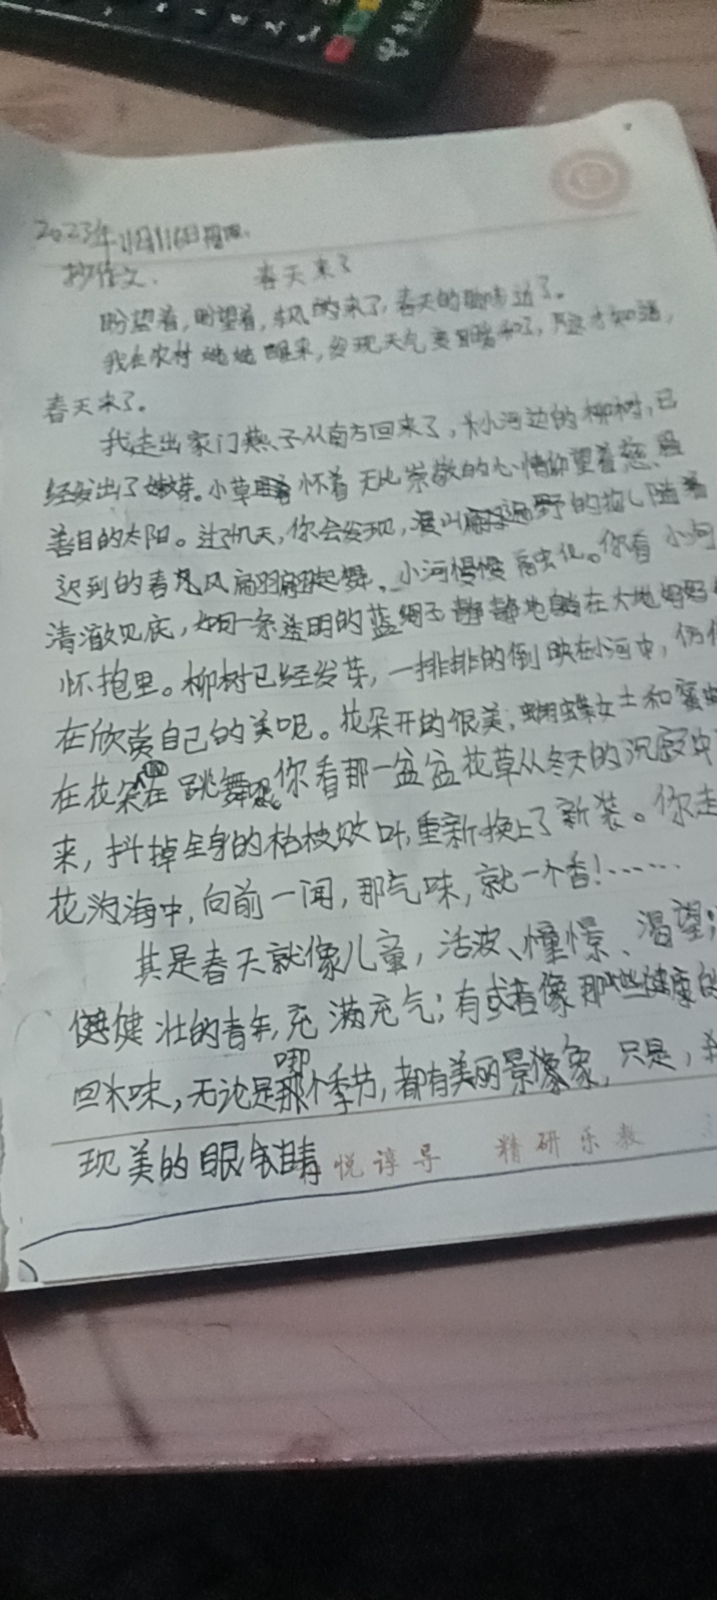 2023年11月16日
抄作文. 春天来了
盼望着,盼望着,东风的来了,春天的脚步近了。
我在农村 醒来,发现天气变暖和了,才知道,
春天来了。
我走出家门燕子从南方回来了,小河边的柳树,已
经发出了嫩芽。小草怀着无比崇敬的心情仰望着慈眉
善目的太阳。过了几天,你会发现,漫山遍野的花儿随着
迟到的春风翩翩起舞。小河慢慢融化。你看小河
清澈见底,如同一条透明的蓝绸子静静地躺在大地妈妈
怀抱里。柳树已经发芽,一排排的倒映在小河中,仿佛
在欣赏自己的美呢。花朵开的很美,蝴蝶女士和蜜蜂
在花朵在跳舞呢你看那一盆盆花草从冬天的沉寂中
来,抖掉全身的枯枝败叶,重新换上了新装。你走
花海中,向前一闻,那气味,就一个香!……
其是春天就像儿童,活波、憧憬、渴望;
健壮的青年,充满充气;有或者像那些健康的
回木味,无论是哪个季节,都有美丽景象,只是,
现美的眼睛
悦谆导 精研乐教